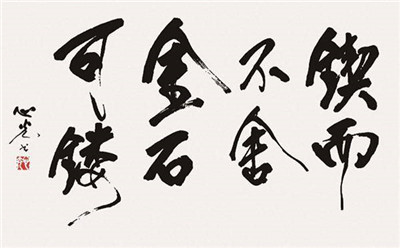 锲而
不舍
金石
可镂
心光书